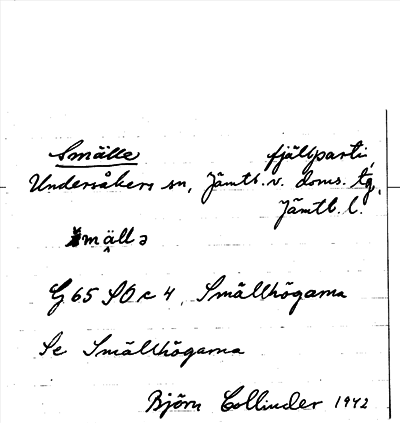 Smälle fjällparti,
Undersåkers sn, Jämtl. v. doms. tg,
Jämtl. l.
smällə
G 65 SO c 4, Smällhögarna
Se Smällhögarna
Björn Collinder 1942